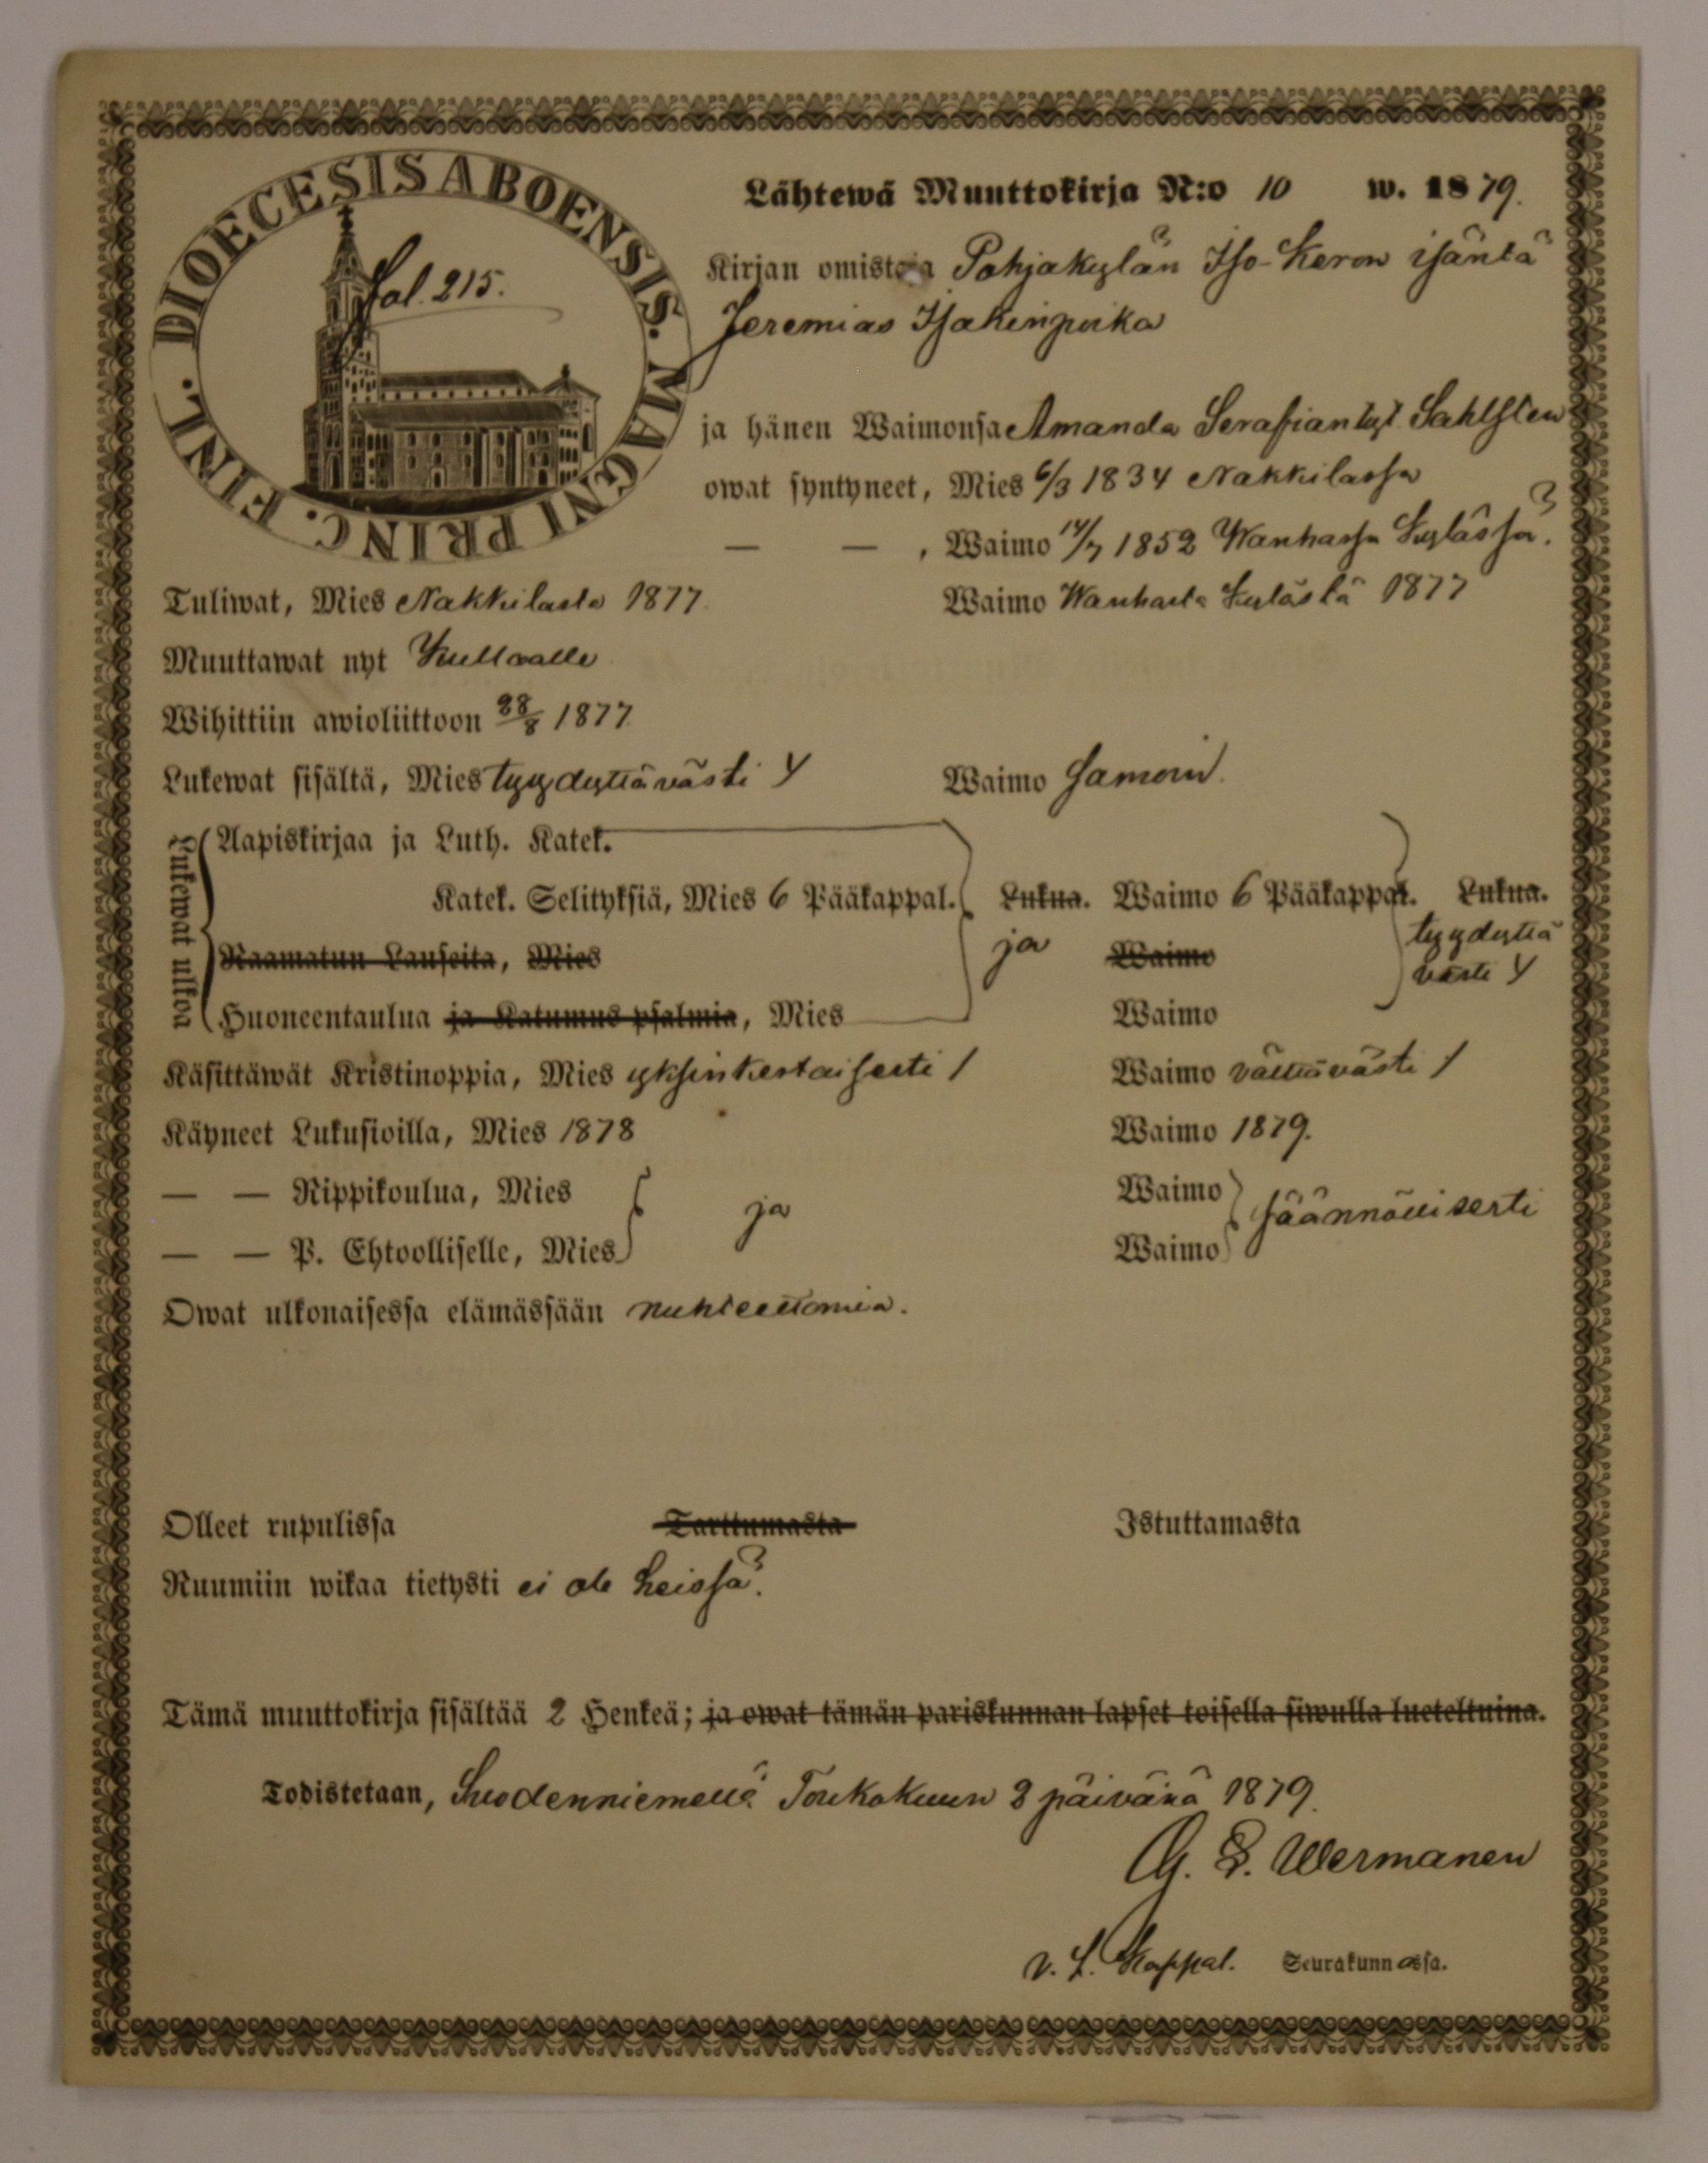 DIOECESIS ABOENSIS. MAGNI PRINC. FINL.
Fol. 215.
Lähtewä Muuttokirja N:o 10 w. 1879.
Kirjan omistaja Pohjakylän Iso-Keron isäntä
Jeremias Isakinpoika
ja hänen Waimonsa Amanda Serafiantyt. Sahlsten
owat syntyneet, Mies 6/3 1834 Nakkilassa
— — , Waimo 14/7 1852 Wanhassa Kylässä.
Tuliwat, Mies Nakkilasta 1877. Waimo Wanhasta Kylästä 1877
Muuttawat nyt Kullaalle
Wihittiin awioliittoon 28/8 1877.
Lukewat sisältä, Mies tyydyttävästi Y Waimo Samoin.
Lukewat ulkoa
Aapiskirjaa ja Luth. Katek.
Katek. Selityksiä, Mies 6 Pääkappal. Lukua. Waimo 6 Pääkappal. Lukua.
Raamatun Lauseita, Mies ja Waimo tyydyttä
västi Y
Huoneentaulua ja Katumus psalmia, Mies Waimo
Käsittäwät Kristinoppia, Mies yksinkertaisesti / Waimo välttävästi /
Käyneet Lukusioilla, Mies 1878 Waimo 1879.
— — Rippikoulua, Mies ja Waimo säännöllisesti
— — P. Ehtoolliselle, Mies Waimo
Owat ulkonaisessa elämässään nuhteettomia.
Olleet rupulissa Tarttumasta Istuttamasta
Ruumiin wikaa tietysti ei ole heissä.
Tämä muuttokirja sisältää 2 Henkeä; ja owat tämän pariskunnan lapset toisella siwulla lueteltuina.
Todistetaan, Suodenniemellä Toukokuun 2 päivänä 1879.
G. E. Wermanen
v. t. Kappal. Seurakunnassa.